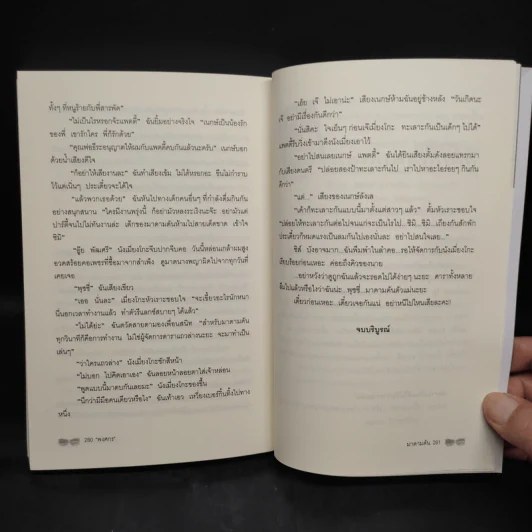 ทั้งๆ ที่หนูร้ายกับพี่สารพัด"
"ไม่เป็นไรหรอกจ้ะแพตตี้" ฉันยิ้มอย่างจริงใจ "เนกษ์เป็นน้องรัก
ของพี่ เขารักใคร พี่ก็รักด้วย"
"คุณพ่ออีระอนุญาตให้ผมกับแพตตี้คบกันแล้วนะครับ" เนกษ์บอก
ด้วยน้ำเสียงดีใจ
"ก็อย่าให้เสียงานละ" ฉันทำเสียงเข้ม ไม่ได้หรอกย่ะ ขืนไม่กำราบ
ไว้แต่เนิ่นๆ ประเดี๋ยวจะได้ใจ
"แล้วพวกเธอด้วย" ฉันหันไปทางเด็กคนอื่นๆ ที่กำลังดื่มกินกัน
อย่างสนุกสนาน "ใครมีงานพรุ่งนี้ ก็อย่ามัวหลงระเริงนะจ๊ะ อย่ามัวแต่
ปาร์ตี้จนไปไม่ทันงานล่ะ เด็กของมาดามต้นห้ามไปสายเด็ดขาด เข้าใจ
ซิมิ"
"อุ๊ย พัฒศรี" นังเมี่ยงโกะจีบปากจีบคอ วันนี้หล่อนกล้ามสูง
อวดสร้อยคอเพชรที่ซื้อมาจากสำเพ็ง ดูมาดนางพญาผิดไปจากทุกวันที่
เคยเจอ
"พุชชี่" ฉันเสียงเขียว
"เออ นั่นละ" เมี่ยงโกะหัวเราะชอบใจ "จะเขี้ยวอะไรนักหนา
นี่นอกเวลาทำงานแล้ว ทำตัวรีแลกซ์สบายๆ ได้แล้ว"
"ไม่ได้ย่ะ" ฉันตวัดสายตามองเพื่อนสนิท "สำหรับมาดามต้น
ทุกวินาทีก็คือการทำงาน ไม่ใช่ผู้จัดการดาราแถวล่างนะยะ จะมาทำเป็น
เล่นๆ"
"ว่าใครแถวล่าง" นังเมี่ยงโกะชักสีหน้า
"ไม่บอก ไปคิดเอาเอง" ฉันลอยหน้าลอยตาใส่เจ้าหล่อน
"พูดแบบนี้มาตบกันเลยมะ" นังเมี่ยงโกะของขึ้น
"นึกว่ามีมือคนเดียวหรือไง" ฉันเท้าเอว เหวี่ยงเบอร์กิ้นทิ้งไปทาง
หนึ่ง
280 "พงศกร"
"เฮ้ย เจ๊ ไม่เอาน่ะ" เสียงเนกษ์ห้ามฉันอยู่ข้างหลัง "วันเกิดนะ
เจ๊ อย่ามีเรื่องกันดีกว่า"
"นั่นสิคะ ใจเย็นๆ ก่อนเจ๊เมี่ยงโกะ ทะเลาะกันเป็นเด็กๆ ไปได้"
แพตตี้รีบวิ่งเข้ามาดึงนังเมี่ยงเอาไว้
"อย่าไปสนเลยเนกษ์ แพตตี้" ฉันได้ยินเสียงตั้มดังลอยแทรกมา
กับเสียงดนตรี "ปล่อยสองป้าทะเลาะกันไป เราไปหาอะไรอร่อยๆ กินกัน
ดีกว่า"
"แต่..." เสียงของเนกษ์ลังเล
"เค้าก็ทะเลาะกันแบบนี้มาตั้งแต่สาวๆ แล้ว" ตั้มหัวเราะชอบใจ
"ปล่อยให้ทะเลาะกันต่อไปจนแก่จะเป็นไรไป...ซิมิ...ซิมิ...เถียงกันสักพัก
ประเดี๋ยวก็หมดแรงเป็นลมกันไปเองล่ะฮะ อย่าไปสนใจเลย..."
ชิส์ นังอาจมาก...ฉันพึมพำในลำคอ...รอให้จัดการกับนังเมี่ยงโกะ
เรียบร้อยก่อนเหอะ ค่อยถึงคิวของนาย
...อย่าหวังว่าดูถูกฉันแล้วจะรอดไปได้ง่ายๆ นะยะ ดาราทั้งหลาย
ลืมไปแล้วหรือไงว่าฉันน่ะ..พุชชี่...มาดามต้นตัวแม่นะยะ
เดี๋ยวก่อนเหอะ...เดี๋ยวเจอกันแน่ อย่าหนีไปไหนเสียละคะ!
จบบริบูรณ์
มาดามต้น 281